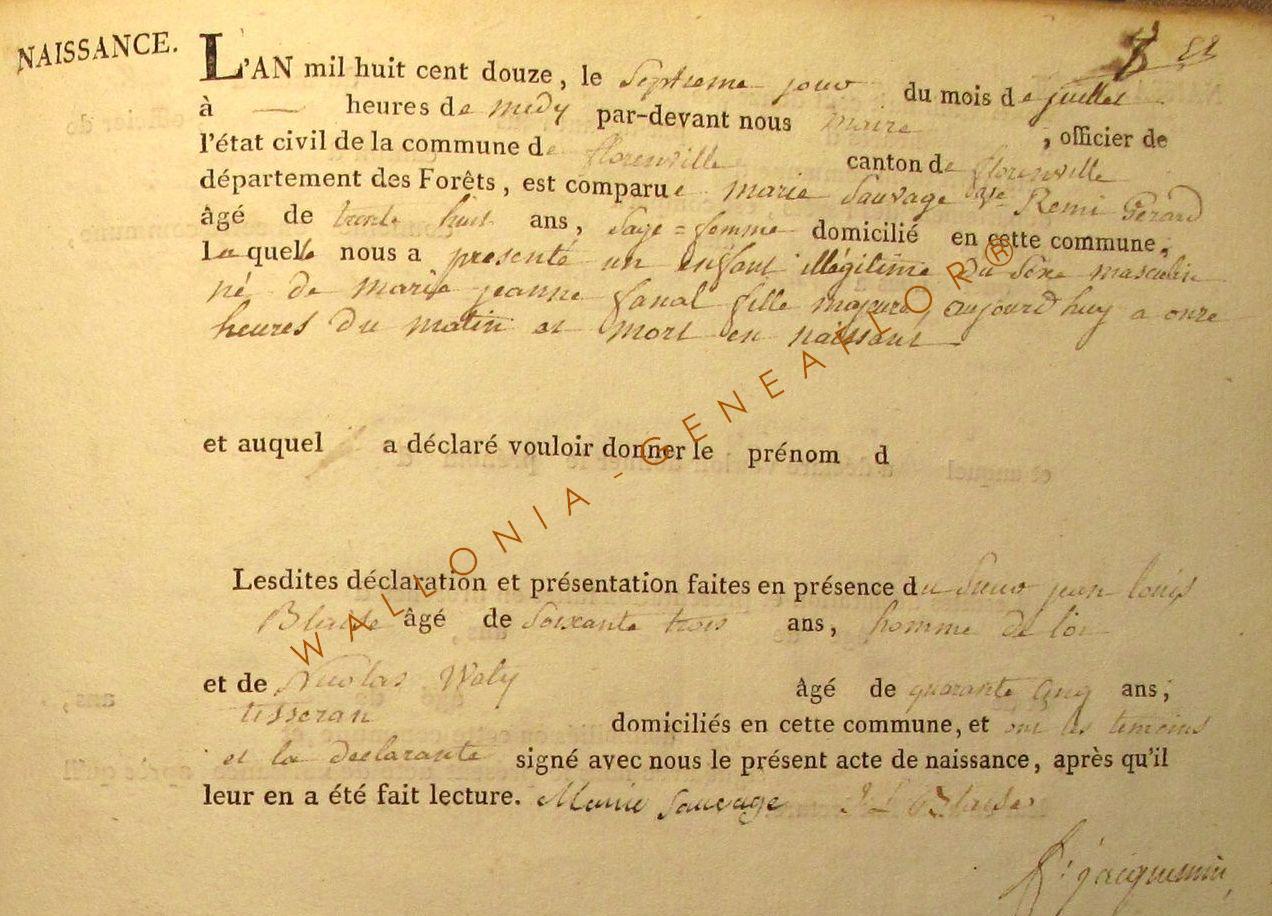 52
NAISSANCE.
L'AN mil huit cent douze, le Septieme jour du mois de juillet
à — heures de midy par-devant nous maire, officier de
l'état civil de la commune de florenville canton de florenville
département des Forêts, est comparue marie Sauvage Remi Gerard
âgé de trente huit ans, Sage=femme domicilié en cette commune,
La quelle nous a presenté un enfant illégitime du Sexe masculin
né de marie jeanne fanal fille majeure aujourd'huy a onze
heures du matin et mort en naissant
et auquel a déclaré vouloir donner le prénom d
Lesdites déclaration et présentation faites en présence du Sieur jean louis
Blaise âgé de Soixante trois ans, homme de loi
et de Nicolas Waty âgé de quarante cinq ans,
tisseran domiciliés en cette commune, et ont les temoins
et la declarante signé avec nous le présent acte de naissance, après qu'il
leur en a été fait lecture. Marie Sauvage J L Blaise
jacquemin
WALLONIA - GENEAFLOR®